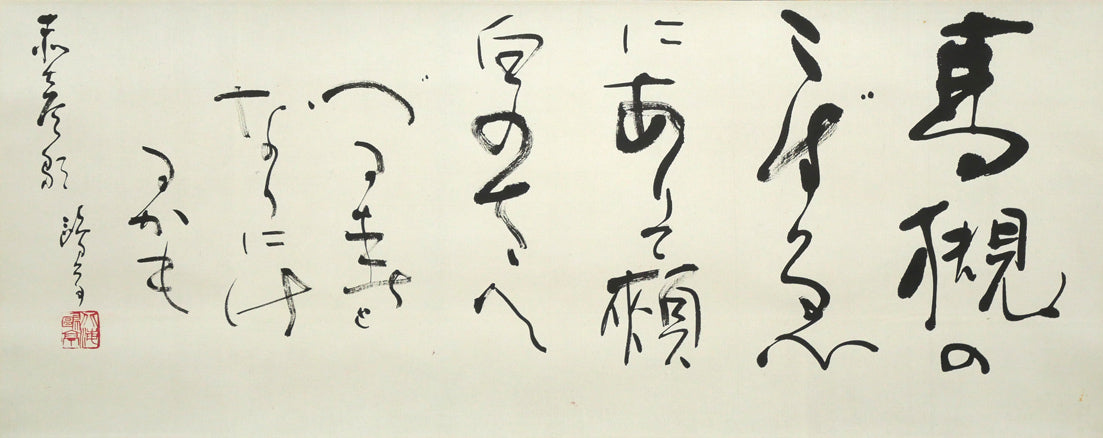 高槻の
こずゑ
にありて頬
白のさへ
づる春と
なりにけ
るかも
赤彦歌